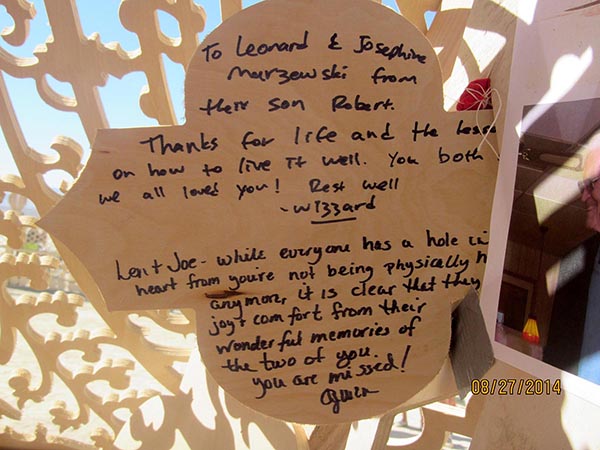 To Leonard & Josephine
Marzewski from
their son Robert.
Thanks for life and the lesso
on how to live it well. You both
we all loved you! Rest well
- wizzard
Len + Joe - while everyone has a hole in
heart from you're not being physically h
anymore, it is clear that they
joy + comfort from their
wonderful memories of
the two of you.
you are missed!
08/27/2014